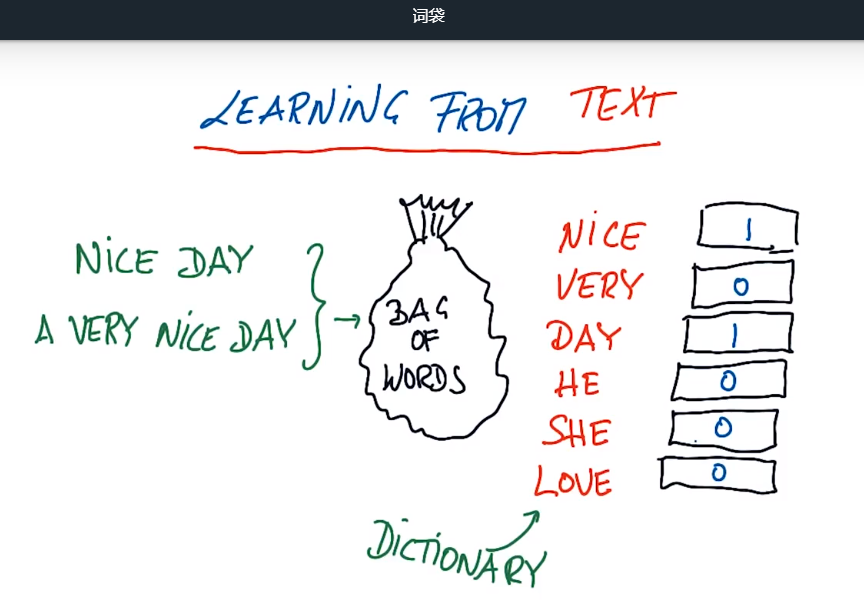 词袋
LEARNING FROM TEXT
NICE DAY
A VERY NICE DAY
BAG
OF
WORDS
NICE 1
VERY 0
DAY 1
HE 0
SHE 0
LOVE 0
DICTIONARY